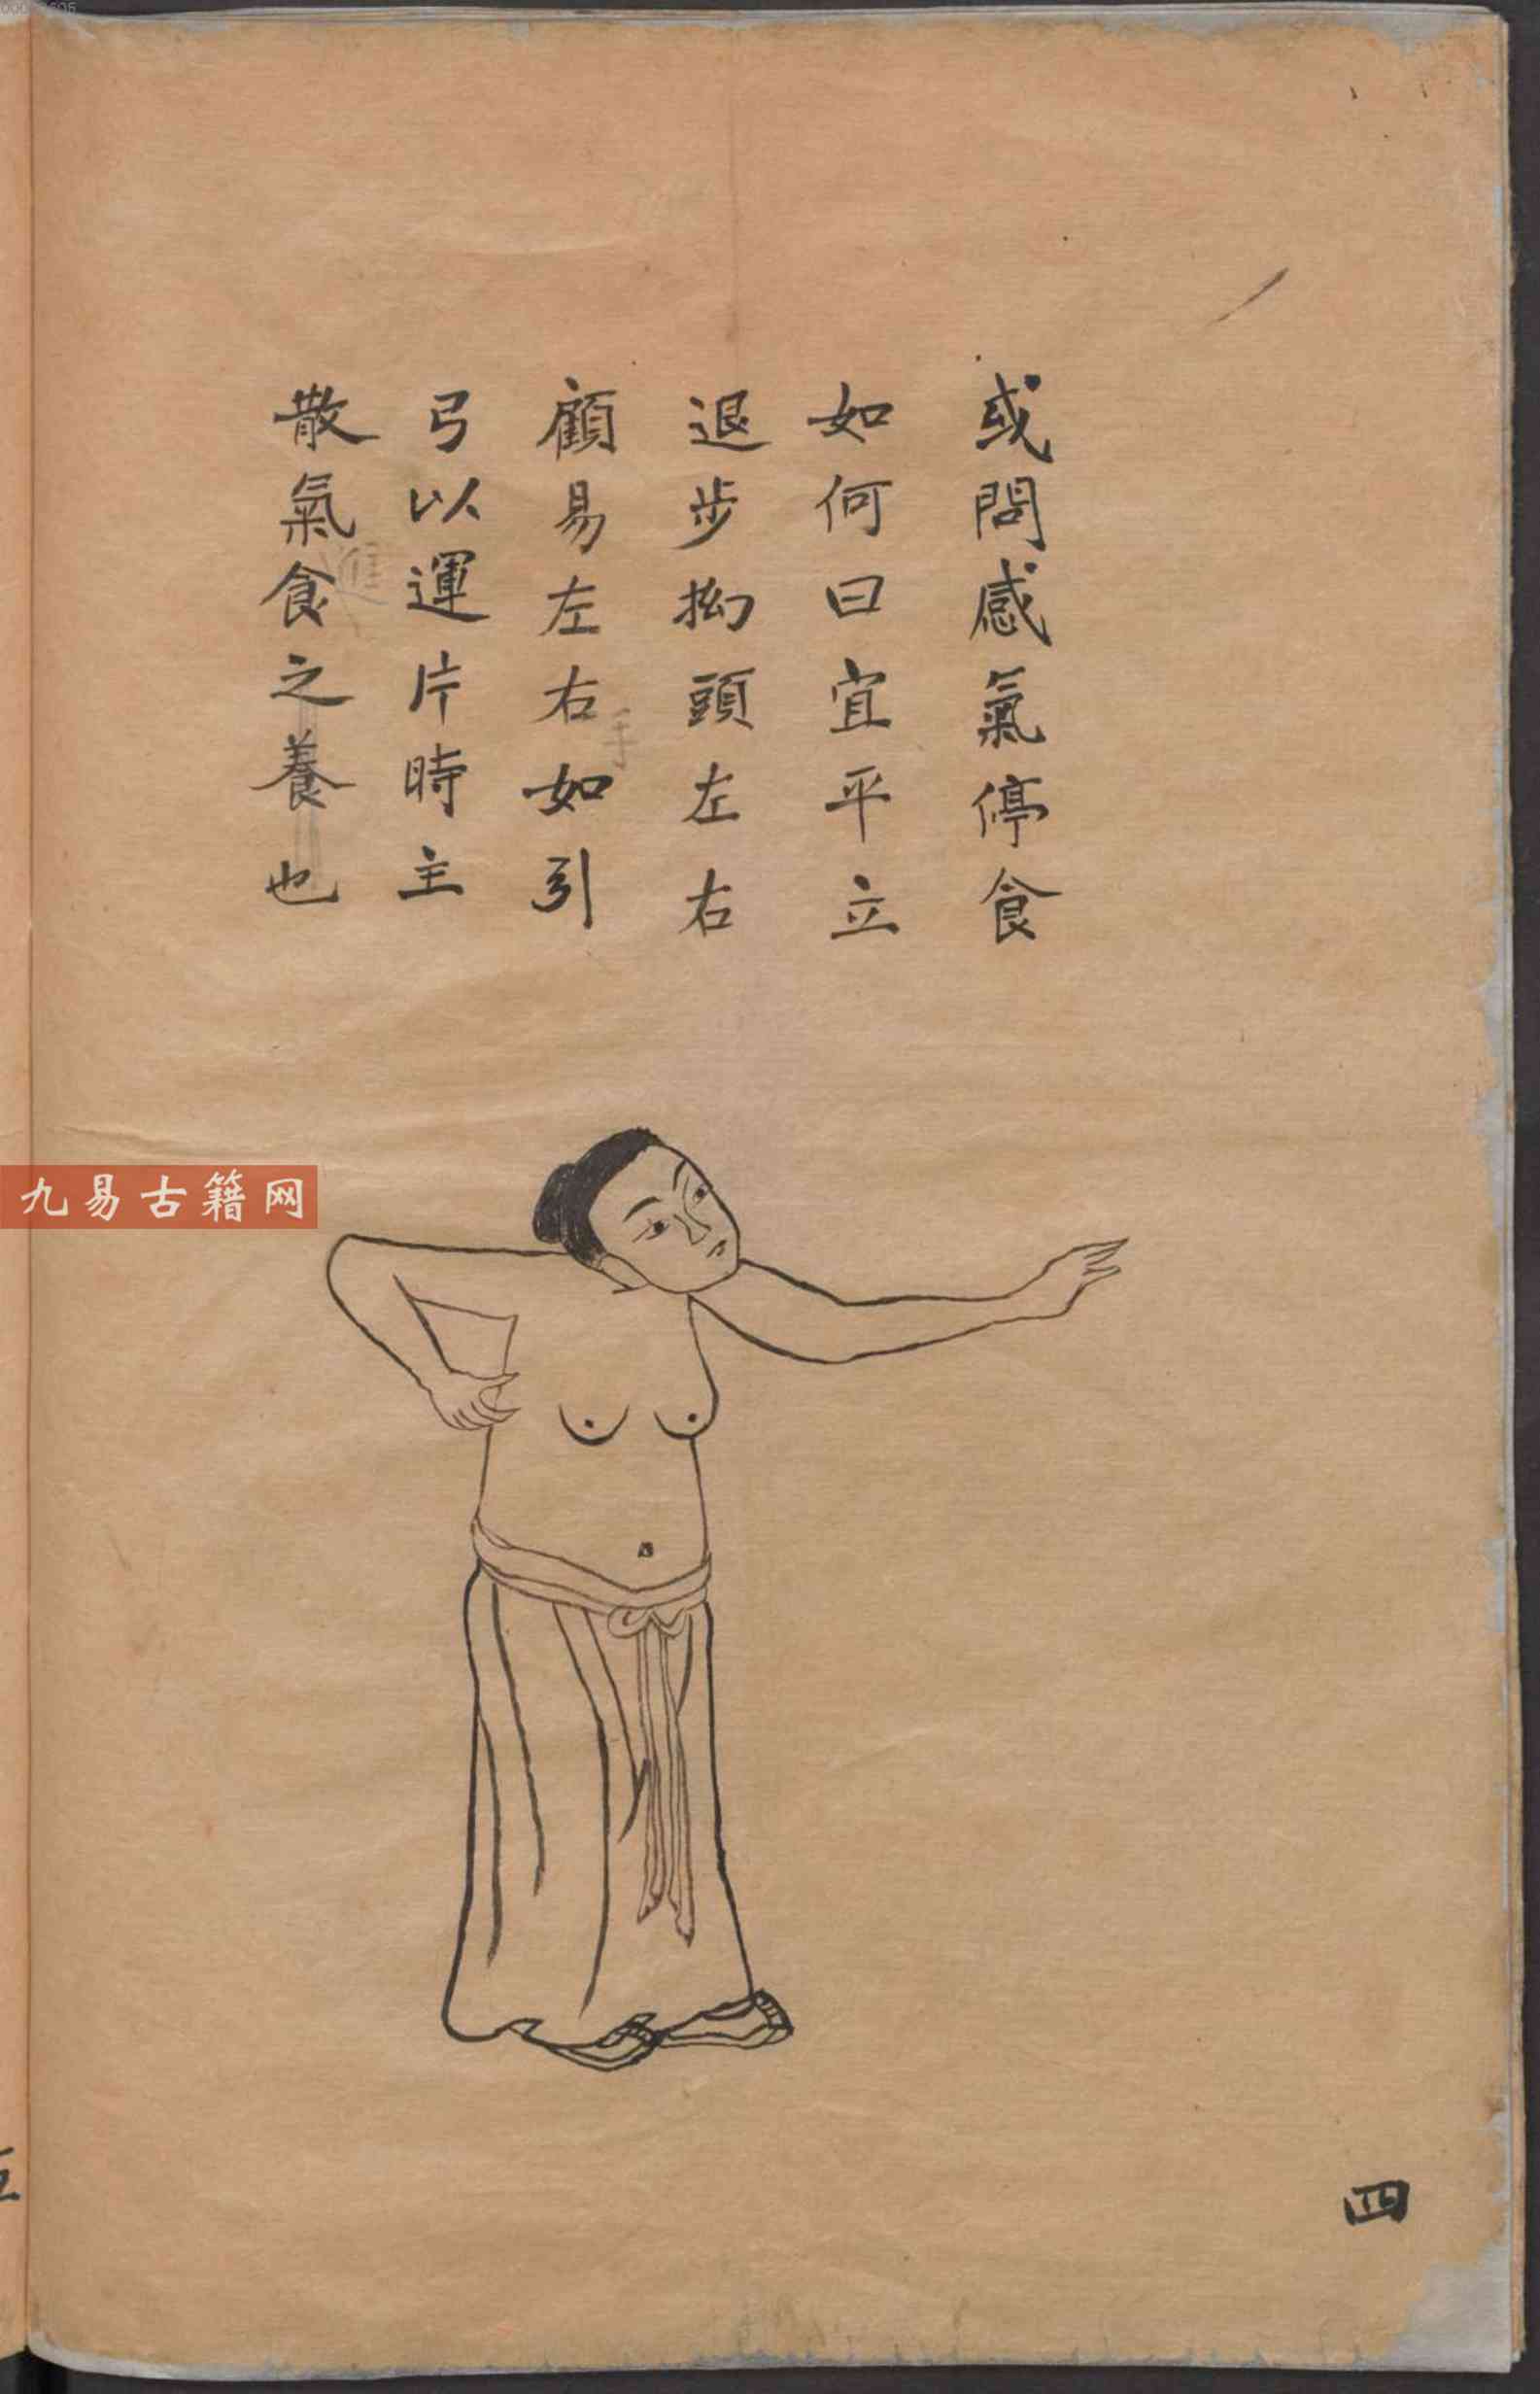 或問感氣停食
如何曰宜平立
退步拗頭左右
顧易左右如引
弓以運片時主
散氣食之養也
四
九易古籍网